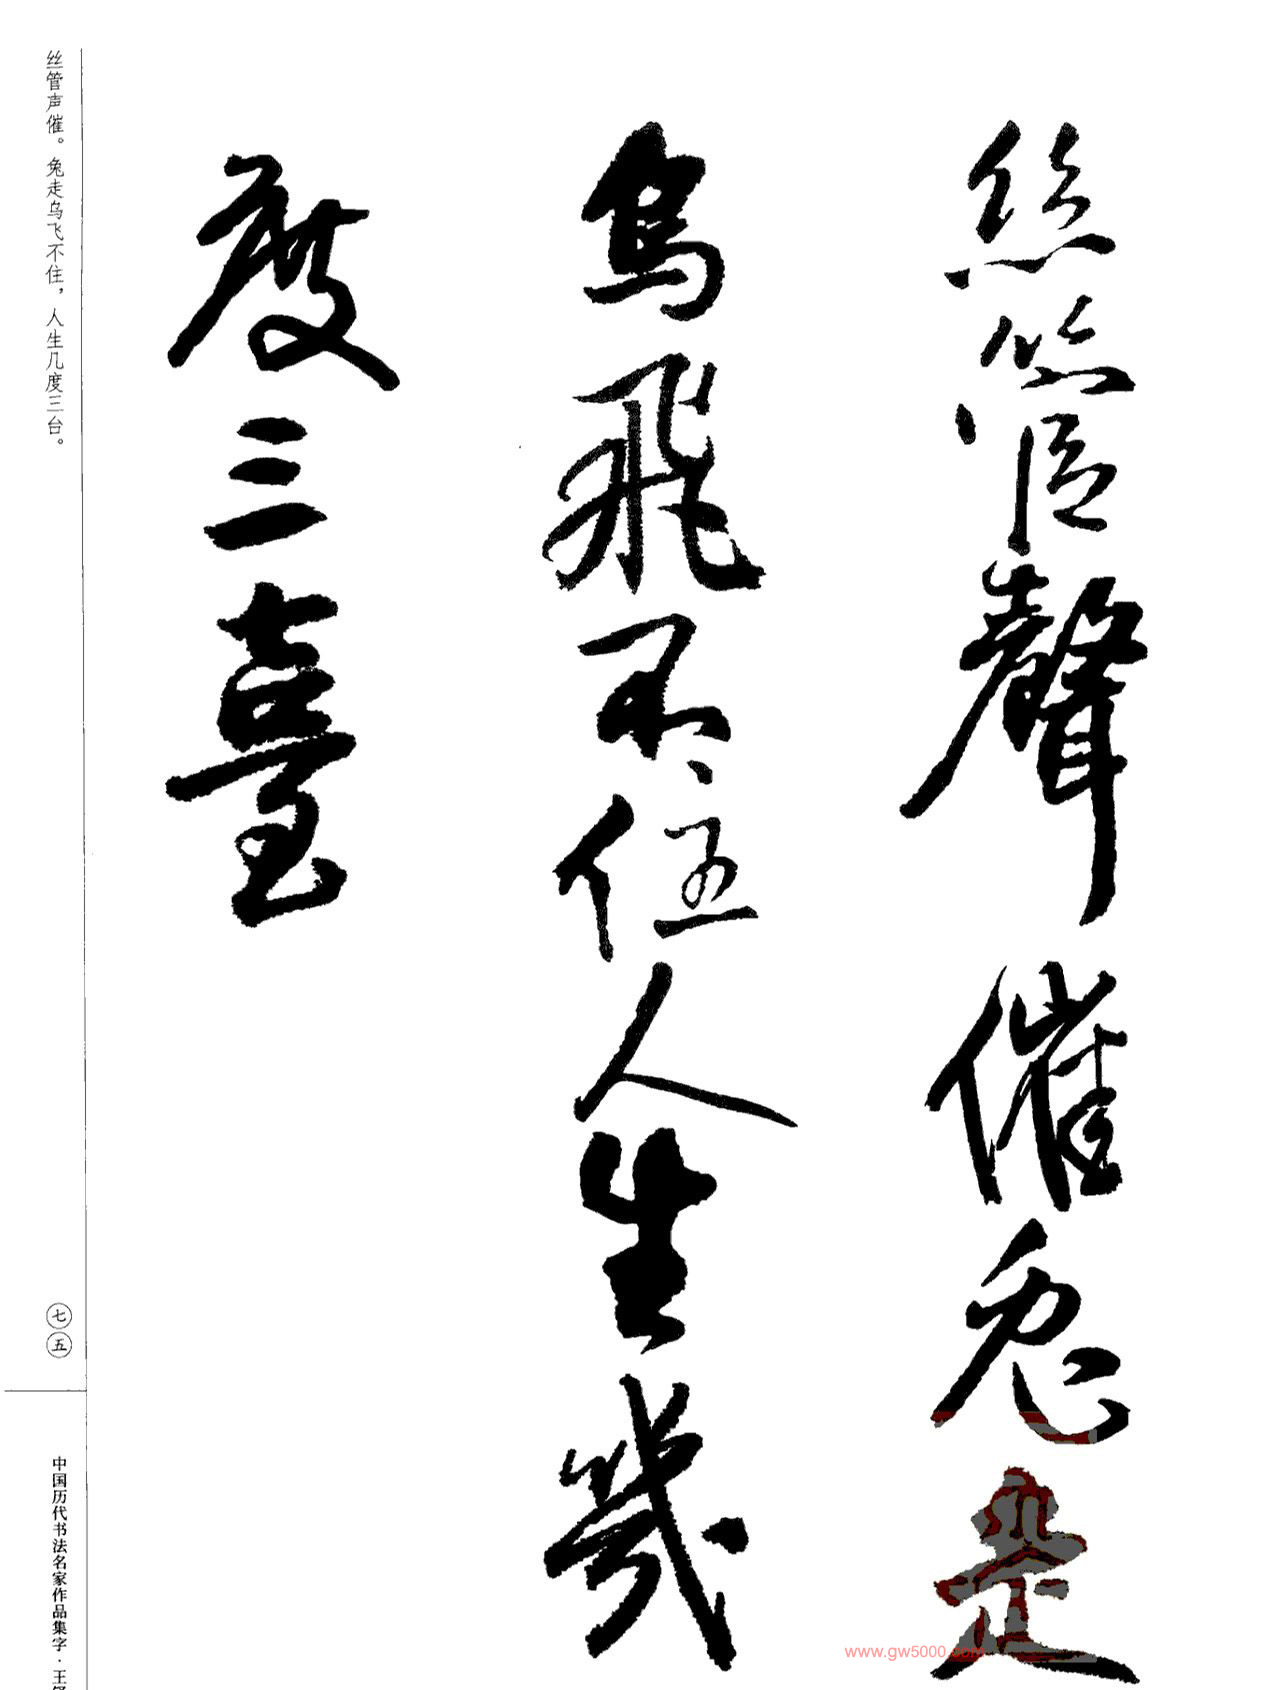 絲管聲催兔走
烏飛不住人生幾
度三臺
丝管声催。兔走乌飞不住，人生几度三台。
七五
中国历代书法名家作品集字·王
www.gw5000.com